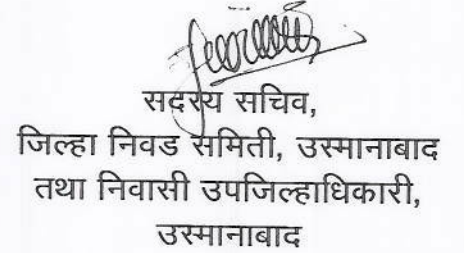 सदस्य सचिव,
जिल्हा निवड समिती, उस्मानाबाद
तथा निवासी उपजिल्हाधिकारी,
उस्मानाबाद